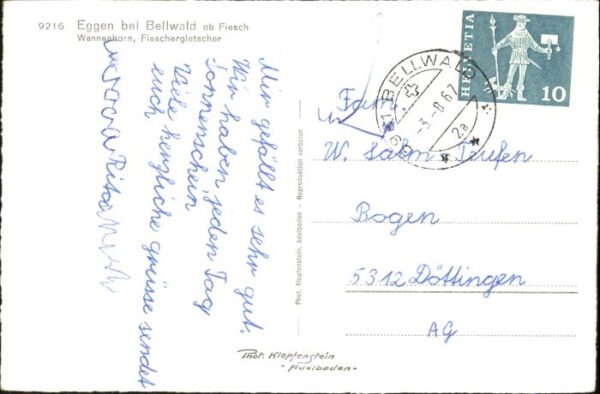 9216 Eggen bei Bellwald ob Fiesch
Wannenhorn, Fieschergletscher
Mir gefällt es sehr gut.
Wir haben jeden Tag
Sonnenschein
Viele herzliche grüsse sendet
euch
Phot. Klopfenstein, Adelboden - Reproduktion verboten
HELVETIA
10
BELLWALD
-3.-8.67
2a
Fam.
W. Salm-Teufen
Bogen
5312 Döttingen
AG
Phot. Klopfenstein
- Adelboden -